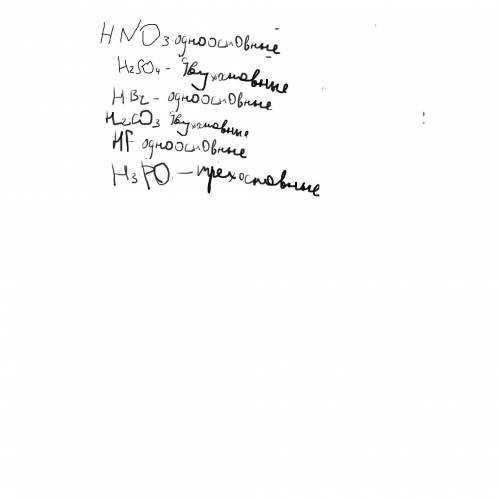 HNO3 одноосновные
H2SO4 - двухосновные
HBr - одноосновные
H2CO3 двухосновные
HF одноосновные
H3PO - трехосновные